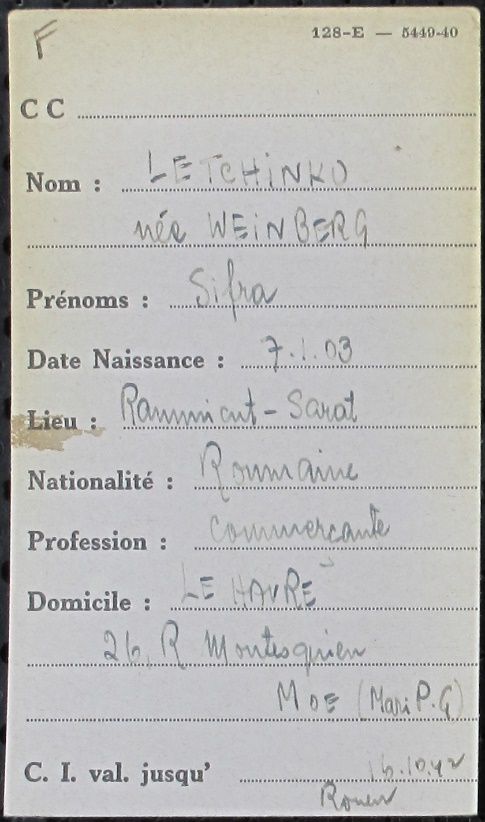 F
128-E — 5449-40
C C
Nom : LETCHINKO
née WEINBERG
Prénoms : Sifra
Date Naissance : 7.1.03
Lieu : Ramnicut-Sarat
Nationalité : Roumaine
Profession : Commerçante
Domicile : LE HAVRE
26, R Montesquieu
MOE (Mari P.G)
C. I. val. jusqu' 16.10.42
Rouen